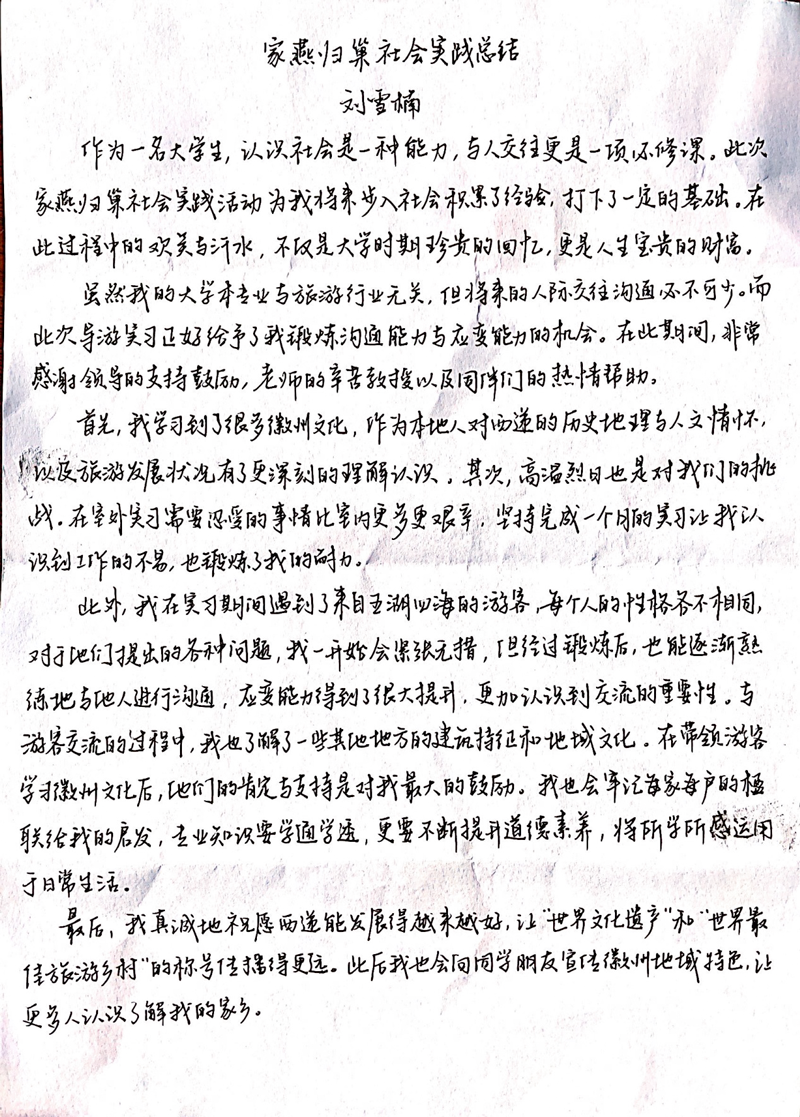 家燕归巢社会实践总结
刘雪楠
作为一名大学生，认识社会是一种能力，与人交往更是一项必修课。此次
家燕归巢社会实践活动为我将来步入社会积累了经验，打下了一定的基础。在
此过程中的欢笑与汗水，不仅是大学时期珍贵的回忆，更是人生宝贵的财富。
虽然我的大学本专业与旅游行业无关，但将来的人际交往沟通必不可少。而
此次导游实习正好给予了我锻炼沟通能力与应变能力的机会。在此期间，非常
感谢领导的支持鼓励，老师的辛苦教授以及同伴们的热情帮助。
首先，我学习到了很多徽州文化，作为本地人对西递的历史地理与人文情怀，
以及旅游发展状况有了更深刻的理解认识。其次，高温烈日也是对我们的挑
战。在室外实习需要忍受的事情比室内更多更艰辛，坚持完成一个月的实习让我认
识到工作的不易，也锻炼了我的耐力。
此外，我在实习期间遇到了来自五湖四海的游客，每个人的性格各不相同，
对于他们提出的各种问题，我一开始会紧张无措，但经过锻炼后，也能逐渐熟
练地与他人进行沟通，应变能力得到了很大提升，更加认识到交流的重要性。与
游客交流的过程中，我也了解了一些其他地方的建筑特征和地域文化。在带领游客
学习徽州文化后，他们的肯定与支持是对我最大的鼓励。我也会牢记每家每户的楹
联给我的启发，专业知识要学通学透，更要不断提升道德素养，将所学所感运用
于日常生活。
最后，我真诚地祝愿西递能发展得越来越好，让“世界文化遗产”和“世界最
佳旅游乡村”的称号传播得更远。此后我也会向同学朋友宣传徽州地域特色，让
更多人认识了解我的家乡。